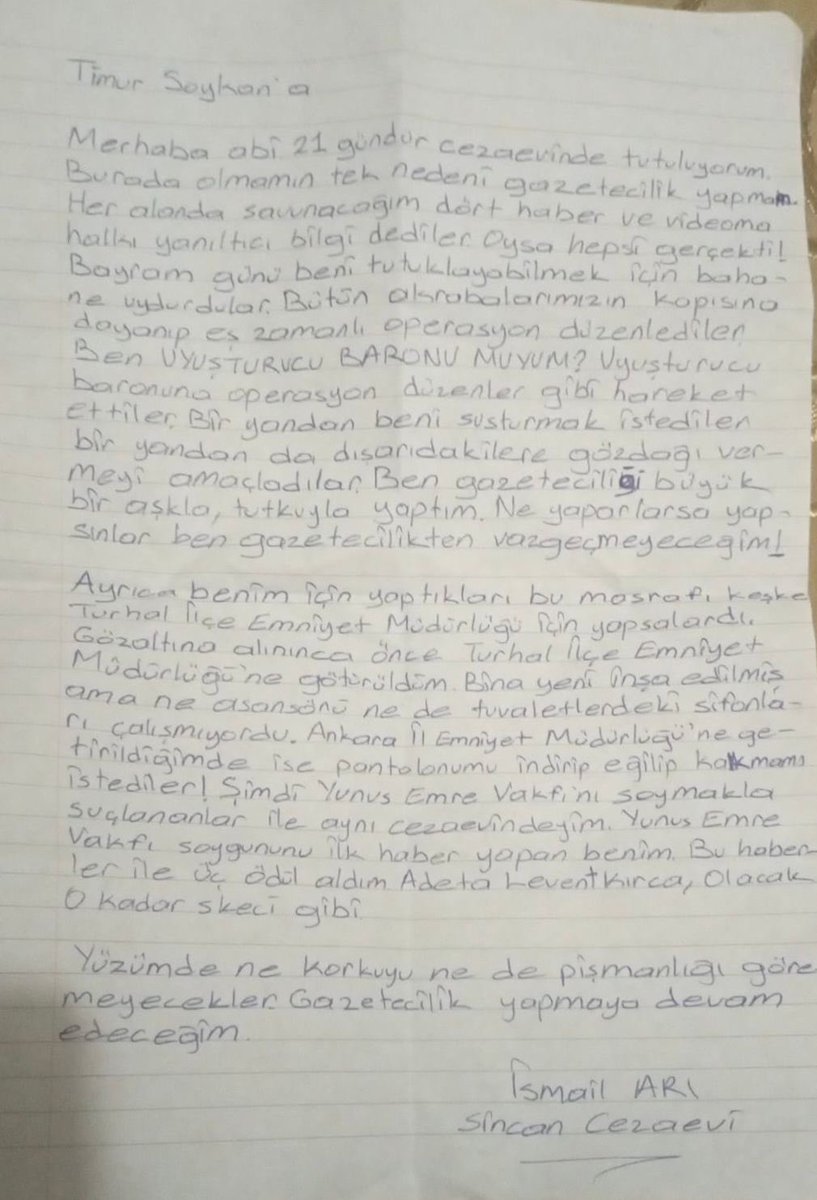 Timur Soykan'a
Merhaba abi 21 gündür cezaevinde tutuluyorum.
Burada olmamın tek nedeni gazetecilik yapmam.
Her alanda savunacağım dört haber ve videoma
halkı yanıltıcı bilgi dediler. Oysa hepsi gerçekti!
Bayram günü beni tutuklayabilmek için baha-
ne uydurdular. Bütün akrabalarımızın kapısına
dayanıp eş zamanlı operasyon düzenlediler.
Ben UYUŞTURUCU BARONU MUYUM? Uyuşturucu
baronuna operasyon düzenler gibi hareket
ettiler. Bir yandan beni susturmak istediler
bir yandan da dışarıdakilere gözdağı ver-
meyi amaçladılar. Ben gazeteciliği büyük
bir aşkla, tutkuyla yaptım. Ne yaparlarsa yap-
sınlar ben gazetecilikten vazgeçmeyeceğim!
Ayrıca benim için yaptıkları bu masrafı keşke
Turhal İlçe Emniyet Müdürlüğü için yapsalardı.
Gözaltına alınınca önce Turhal İlçe Emniyet
Müdürlüğü'ne götürüldüm. Bina yeni inşa edilmiş
ama ne asansönü ne de tuvaletlerdeki sifonla-
rı çalışmıyordu. Ankara İl Emniyet Müdürlüğü'ne ge-
tirildiğimde ise pantolonumu indirip eğilip kalkmamı
istediler! Şimdi Yunus Emre Vakfı'nı soymakla
suçlananlar ile aynı cezaevindeyim. Yunus Emre
Vakfı soygununu ilk haber yapan benim. Bu haber-
ler ile üç ödül aldım. Adeta Levent Kırca, Olacak
O Kadar skeci gibi.
Yüzümde ne korkuyu ne de pişmanlığı göre
meyecekler. Gazetecilik yapmaya devam
edeceğim.
İsmail ARI
Sincan Cezaevi